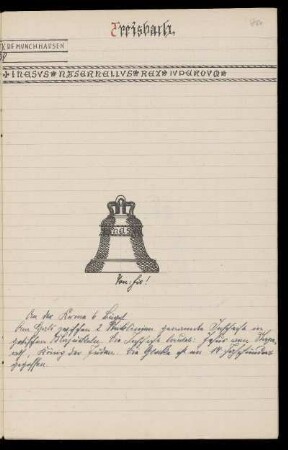 Freisbach.
DEMÜNCHHAUSEN
INESVS NASERNELLVS REX IVDEROVM
Von: hie!
An der Krone 6 Bügel.
Am Hals zwischen 2 Stricklinien genannte Inschrift in
gotischen Minuskeln. Die Inschrift lautet: Jesus von Nazar-
eth, König der Juden. Die Glocke ist im 14. Jahrhundert
gegossen.